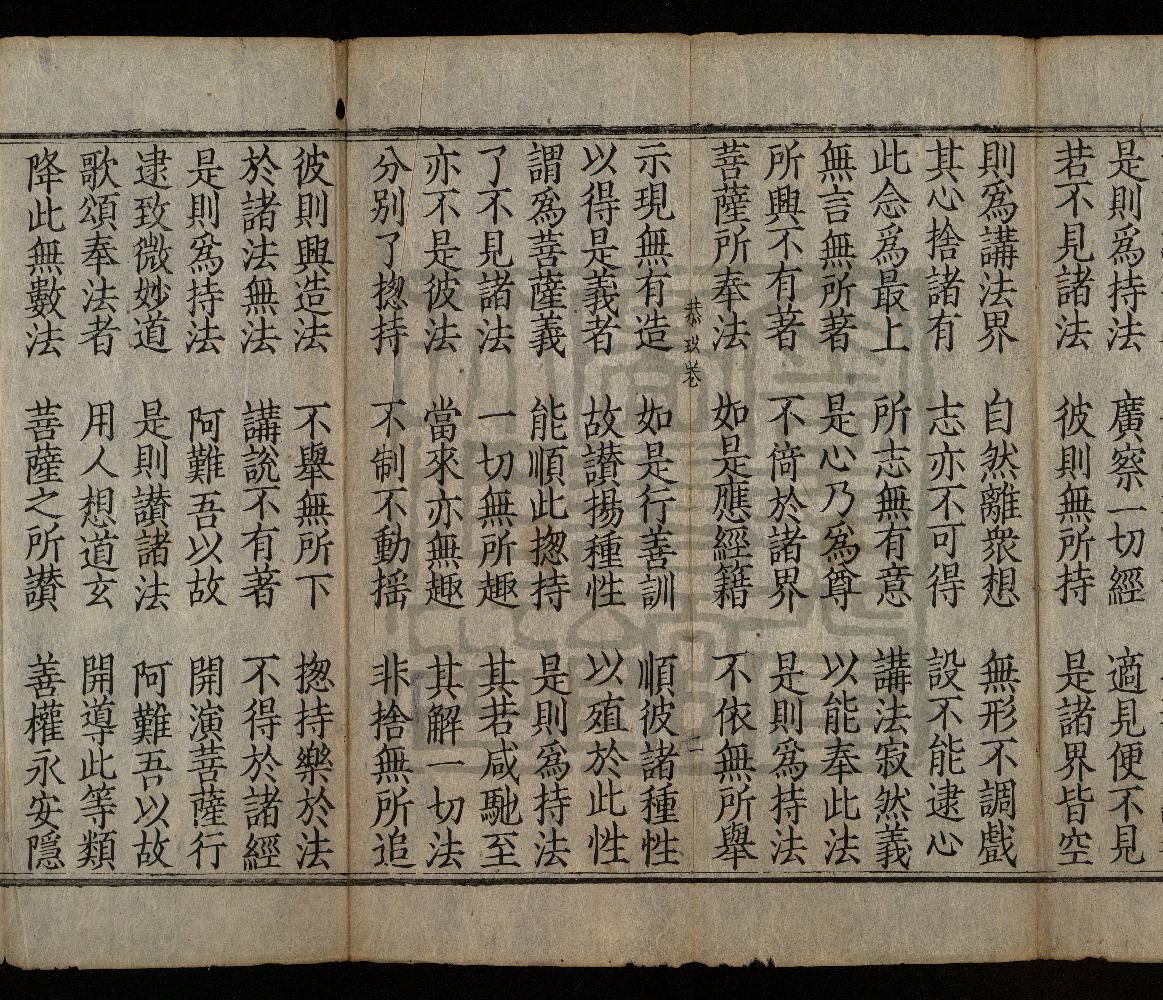 是則爲持法　廣察一切經　適見便不見
若不見諸法　彼則無所持　是諸界皆空
則爲講法界　自然離衆想　無形不調戲
其心捨諸有　志亦不可得　設不能逮心
此念爲最上　所志無有意　講法寂然義
無言無所著　是心乃爲尊　以能奉此法
所興不有著　不倚於諸界　是則爲持法
菩薩所奉法　如是應經籍　不依無所舉
恭玖卷　二
示現無有造　如是行善訓　順彼諸種性
以得是義者　故讃揚種性　以殖於此性
謂爲菩薩義　能順此揔持　是則爲持法
了不見諸法　一切無所趣　其若咸馳至
亦不是彼法　當來亦無趣　其解一切法
分别了揔持　不制不動揺　非捨無所追
彼則興造法　不舉無所下　揔持樂於法
於諸法無法　講說不有著　不得於諸經
是則爲持法　阿難吾以故　開演菩薩行
逮致微妙道　是則讃諸法　阿難吾以故
歌頌奉法者　用人想道玄　開導此等類
降此無數法　菩薩之所讃　善權永安隱